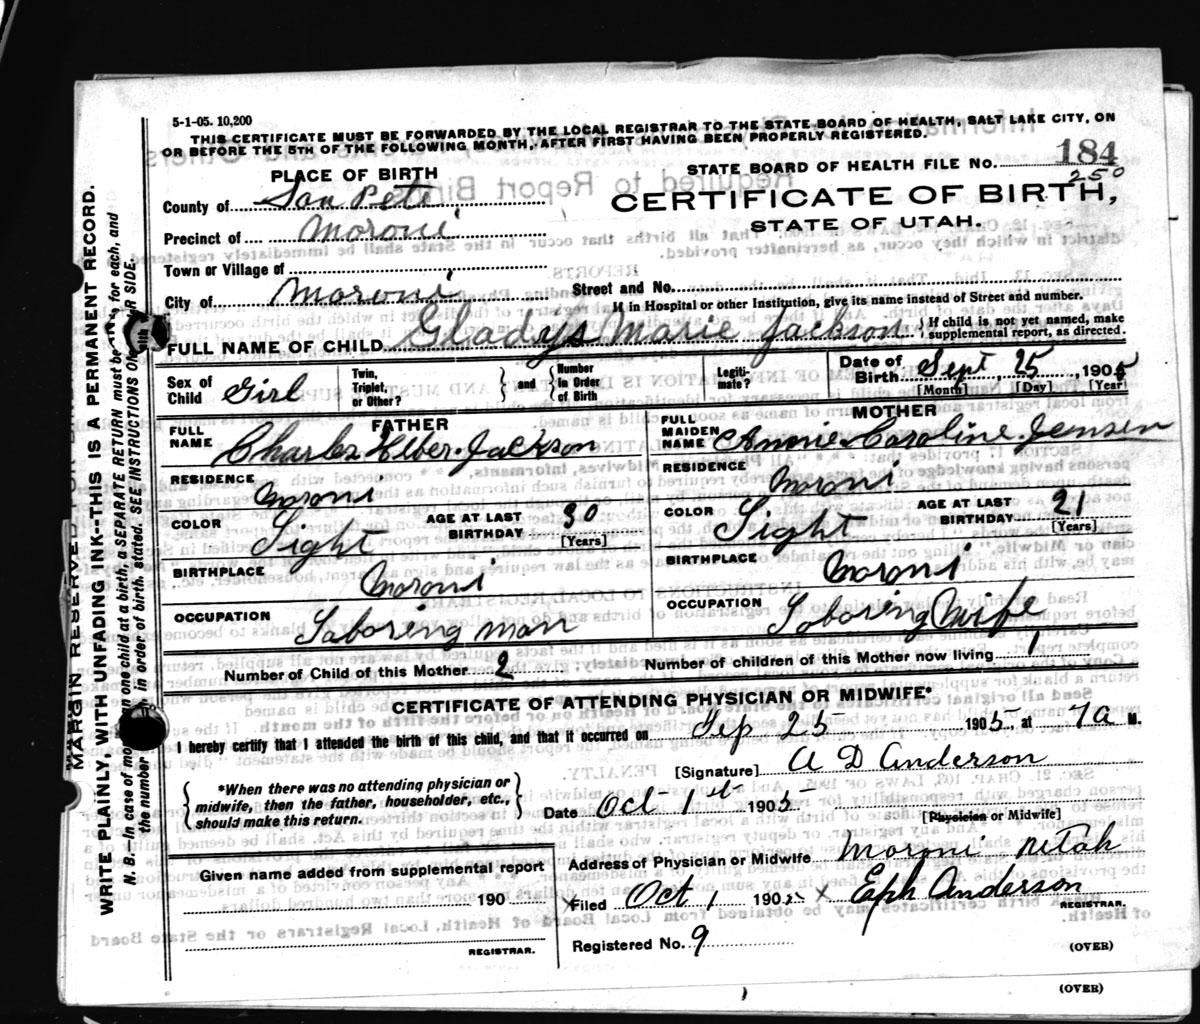 5-1-05. 10,200
THIS CERTIFICATE MUST BE FORWARDED BY THE LOCAL REGISTRAR TO THE STATE BOARD OF HEALTH, SALT LAKE CITY, ON
OR BEFORE THE 5TH OF THE FOLLOWING MONTH, AFTER FIRST HAVING BEEN PROPERLY REGISTERED.
STATE BOARD OF HEALTH FILE NO. 184
250
PLACE OF BIRTH
CERTIFICATE OF BIRTH,
STATE OF UTAH.
County of San Pete
Precinct of Moroni
Town or Village of
Street and No.
City of Moroni
If in Hospital or other Institution, give its name instead of Street and number.
FULL NAME OF CHILD Gladys Marie Jackson
If child is not yet named, make
supplemental report, as directed.
Sex of Child Girl
Twin, Triplet, or Other?
and
Number in Order of Birth
Legiti-mate?
Date of Birth Sept 25, 1905
[Month] [Day] [Year]
FATHER
FULL NAME Charles Heber Jackson
RESIDENCE Moroni
COLOR Light
AGE AT LAST BIRTHDAY 30
[Years]
BIRTHPLACE Moroni
OCCUPATION Laboring man
MOTHER
FULL MAIDEN NAME Annie Caroline Jensen
RESIDENCE Moroni
COLOR Light
AGE AT LAST BIRTHDAY 21
[Years]
BIRTHPLACE Moroni
OCCUPATION Laboring Wife
Number of Child of this Mother 2
Number of children of this Mother now living 1
CERTIFICATE OF ATTENDING PHYSICIAN OR MIDWIFE*
I hereby certify that I attended the birth of this child, and that it occurred on Sep 25 1905 at 7 a M.
[Signature] A D Anderson
*When there was no attending physician or
midwife, then the father, householder, etc.,
should make this return.
Date Oct 1st 1905
[Physician or Midwife]
Address of Physician or Midwife Moroni Utah
Given name added from supplemental report
190
REGISTRAR.
Filed Oct 1 1905 x Eph Anderson
REGISTRAR.
Registered No. 9
(OVER)
(OVER)
MARGIN RESERVED
WRITE PLAINLY, WITH UNFADING INK--THIS IS A PERMANENT RECORD.
N. B.--In case of more than one child at a birth, a SEPARATE RETURN must be for each, and
the number in order of birth, stated. SEE INSTRUCTIONS SIDE.